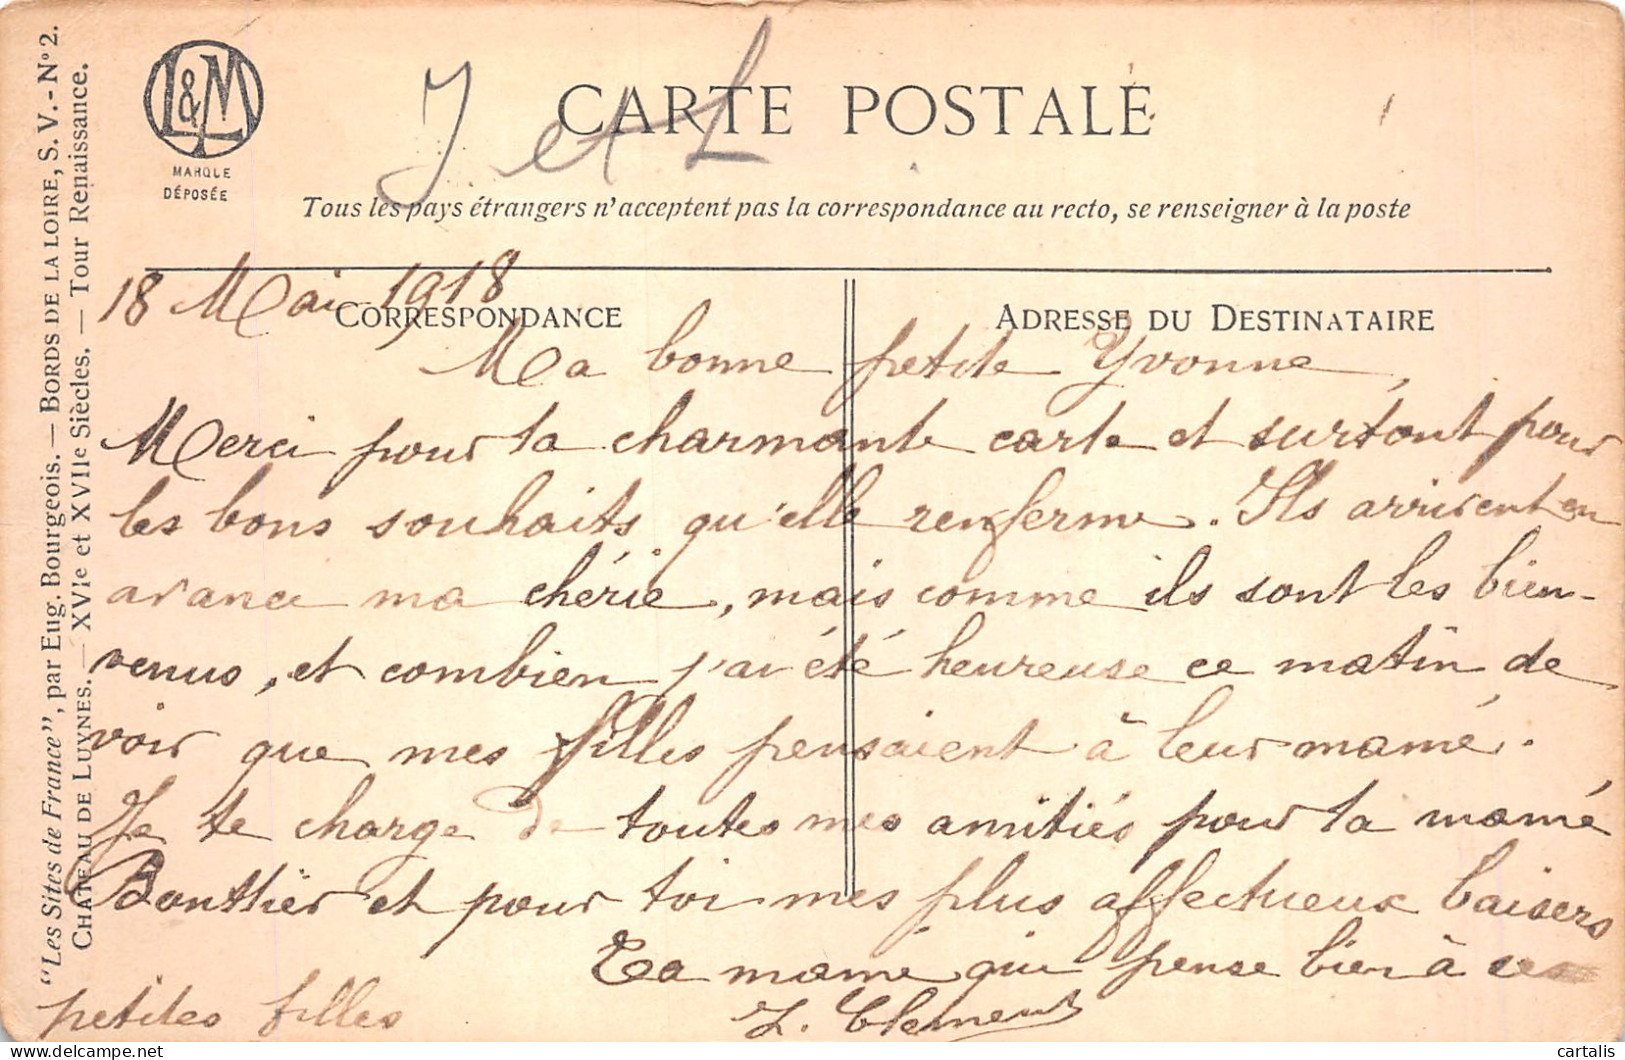 "Les Sites de France", par Eug. Bourgeois. — BORDS DE LA LOIRE, S. V. - N° 2.
CHATEAU DE LUYNES. — XVIe et XVIIe Siècles. — Tour Renaissance.
L&M
MARQUE
DÉPOSÉE
J et L
CARTE POSTALE
Tous les pays étrangers n'acceptent pas la correspondance au recto, se renseigner à la poste
18 Mai 1918
CORRESPONDANCE
ADRESSE DU DESTINATAIRE
Ma bonne petite Yvonne,
Merci pour ta charmante carte et surtout pour
les bons souhaits qu'elle renferme. Ils arrivent en
avance ma chérie, mais comme ils sont les bien-
venus, et combien j'ai été heureuse ce matin de
voir que mes filles pensaient à leur mamé.
Je te charge de toutes mes amitiés pour ta mamé
Bonthier et pour toi mes plus affectueux baisers
Ta mamé qui pense bien à ses
petites filles
L. Clement
cartalis